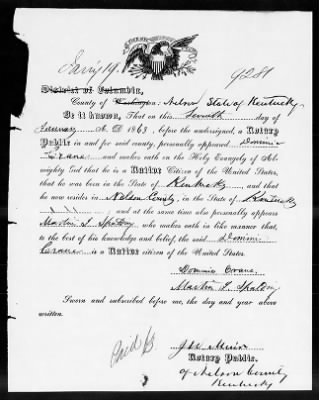 Jany 19.
9281
District of Columbia,
County of Washington: Nelson State of Kentucky
Be it known, That on this Seventh day of
January A. D. 1863, before the undersigned, a Notary
Public in and for said county, personally appeared Dominic
Evans and makes oath on the Holy Evangely of Al-
mighty God that he is a Native Citizen of the United States,
that he was born in the State of Kentucky, and that
he now resides in Nelson County, in the State of Kentucky
and at the same time also personally appears
Martin who makes oath in like manner that,
to the best of his knowledge and belief, the said Domini
is a native citizen of the United States.
Martin
Sworn and subscribed before me, the day and year above
written.
Notary Public.
of Nelson County
Kentucky